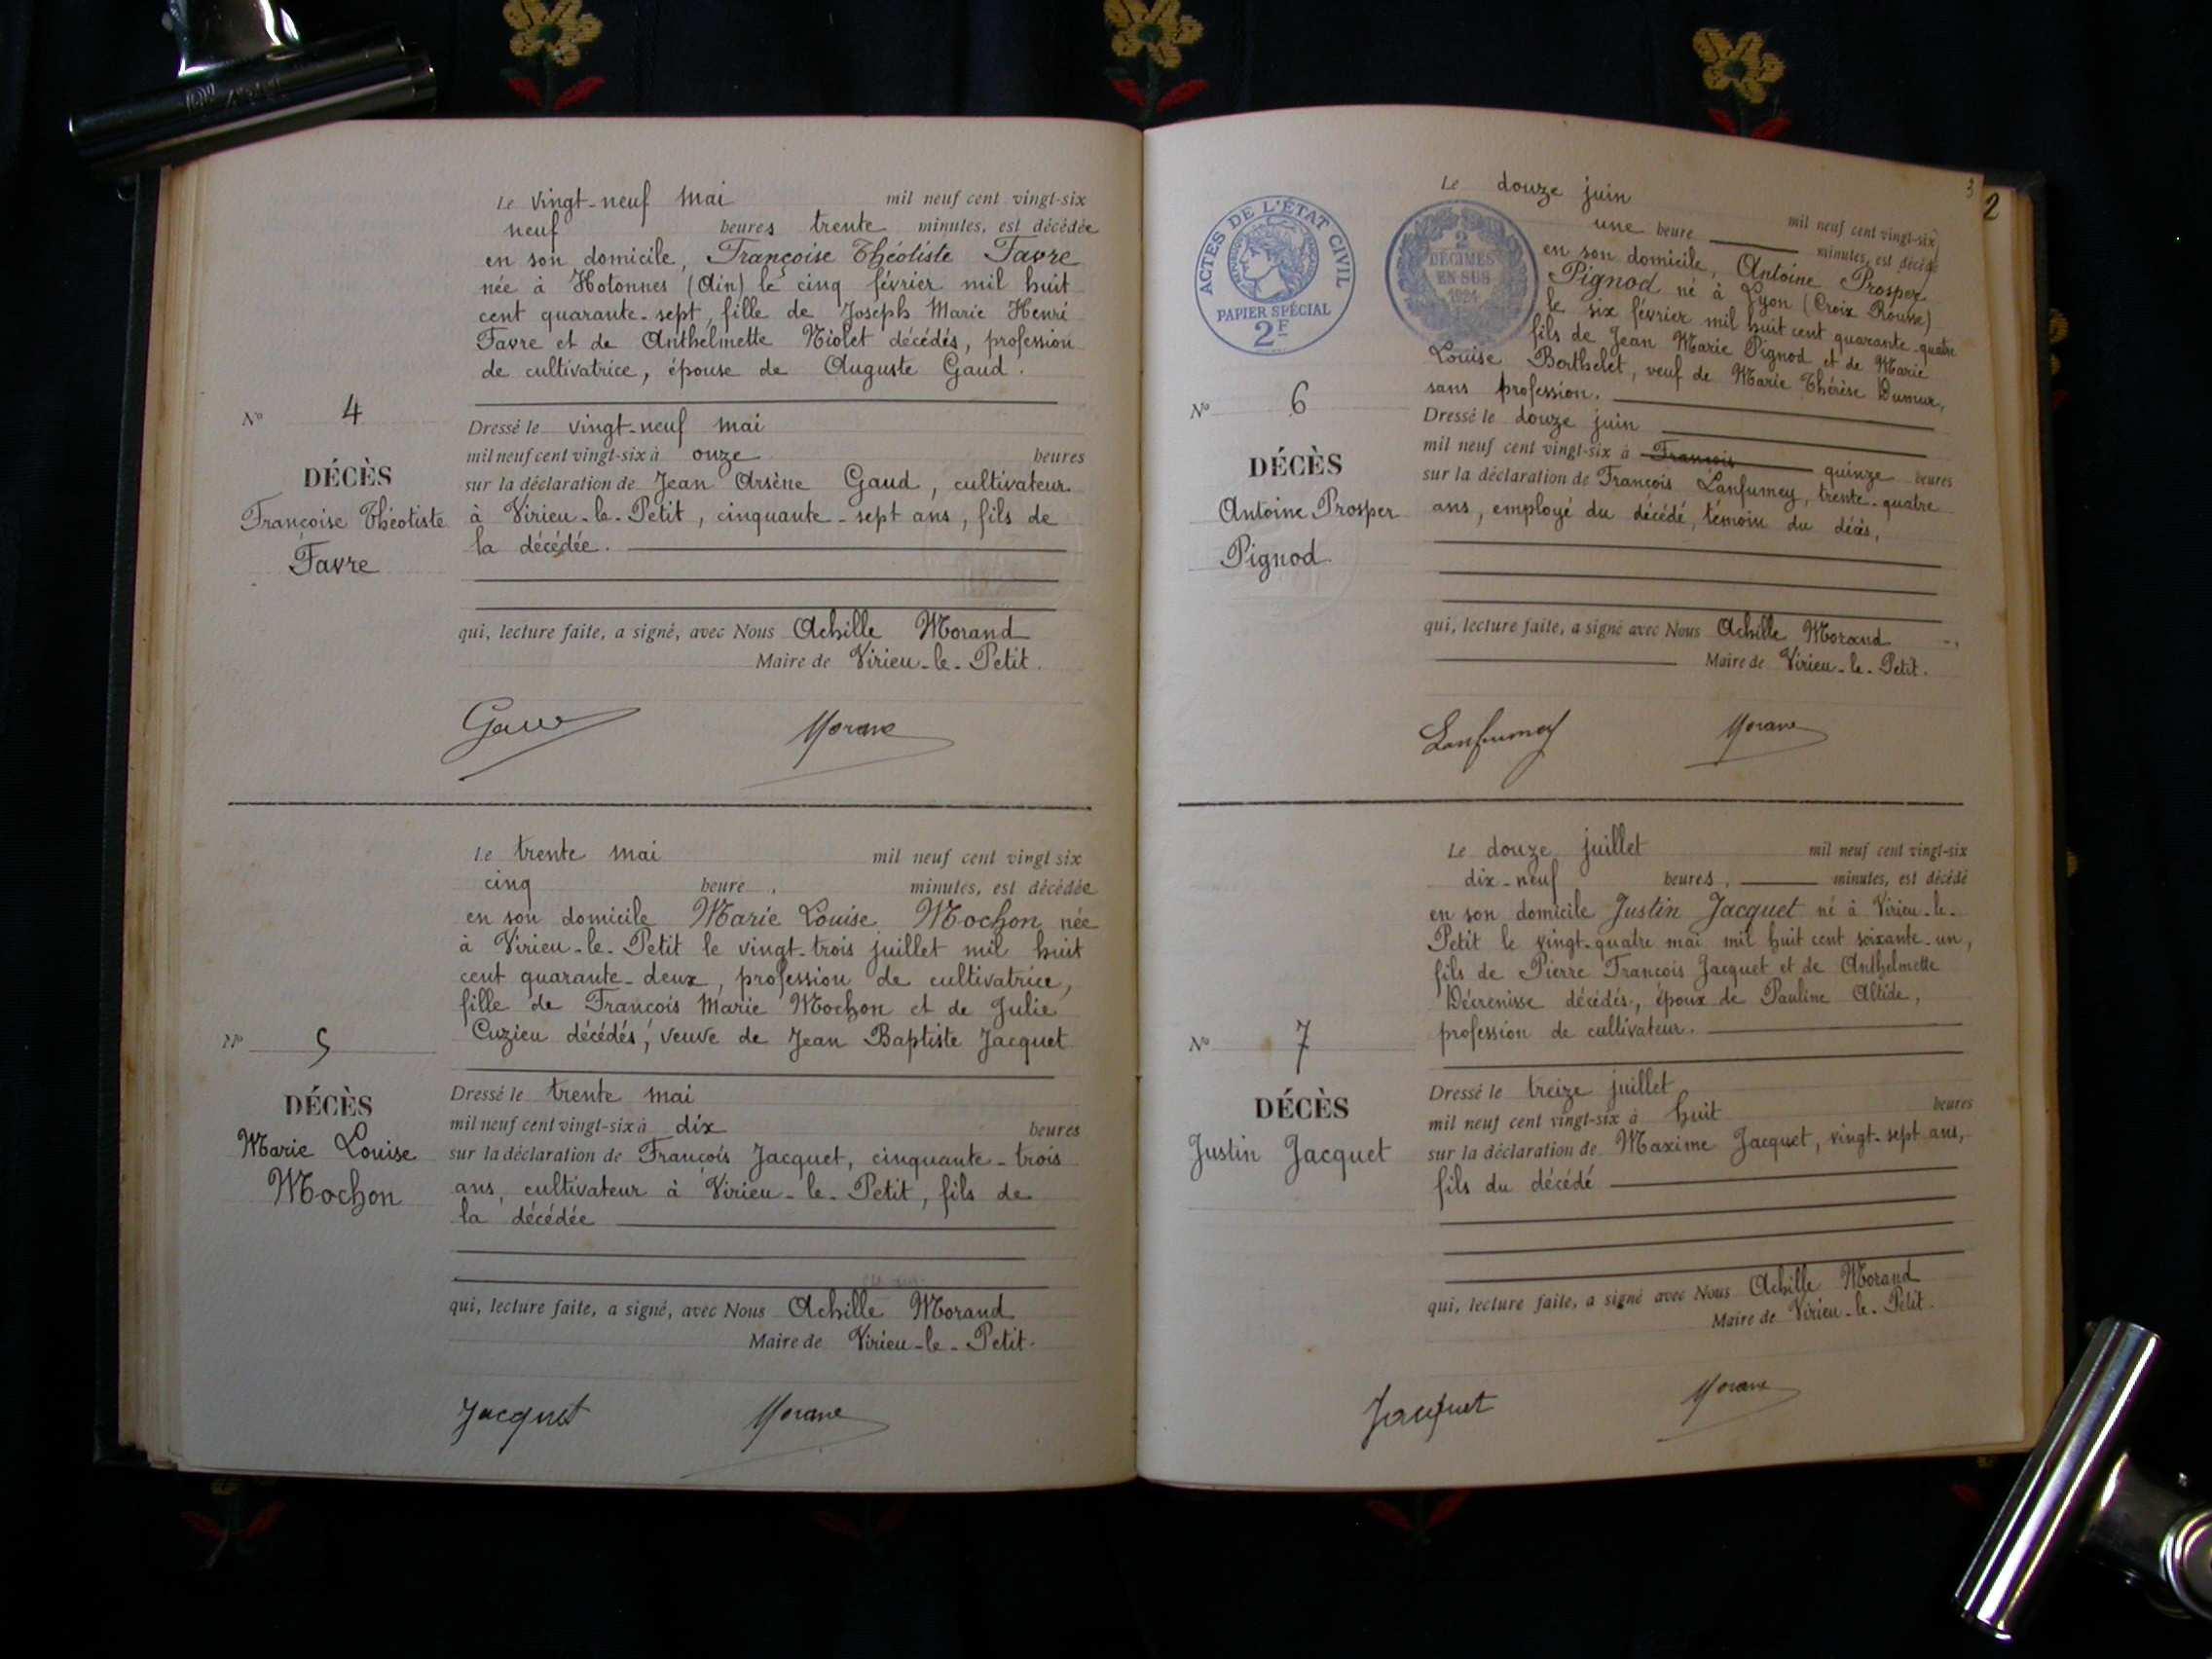 Le vingt-neuf mai mil neuf cent vingt-six
neuf heures trente minutes, est décédée
en son domicile, Françoise Théotiste Favre
née à Hotonnes (Ain) le cinq février mil huit
cent quarante-sept, fille de Joseph Marie Henri
Favre et de Anthelmette Niolet décédés, profession
de cultivatrice, épouse de Auguste Gaud.
N° 4
DÉCÈS
Françoise Théotiste
Favre
Dressé le vingt-neuf mai
mil neuf cent vingt-six à onze heures
sur la déclaration de Jean Arsène Gaud, cultivateur
à Virieu-le-Petit, cinquante-sept ans, fils de
la décédée.
qui, lecture faite, a signé, avec Nous Achille Morand
Maire de Virieu-le-Petit.
Morand
Le trente mai mil neuf cent vingt six
cinq heure, minutes, est décédée
en son domicile Marie Louise Mochon née
à Virieu-le-Petit le vingt-trois juillet mil huit
cent quarante-deux, profession de cultivatrice,
fille de François Marie Mochon et de Julie
Cuzieu décédés, veuve de Jean Baptiste Jacquet
N° 5
DÉCÈS
Marie Louise
Mochon
Dressé le trente mai
mil neuf cent vingt-six à dix heures
sur la déclaration de François Jacquet, cinquante-trois
ans, cultivateur à Virieu-le-Petit, fils de
la décédée
qui, lecture faite, a signé, avec Nous Achille Morand
Maire de Virieu-le-Petit.
Jacquet Morand
3
2
ACTES DE L'ÉTAT CIVIL
PAPIER SPÉCIAL
2F
2
DÉCIMES
EN SUS
1924
Le douze juin mil neuf cent vingt-six
une heure minutes, est décédé
en son domicile, Antoine Prosper
Pignod né à Lyon (Croix Rousse)
le six février mil huit cent quarante-quatre
fils de Jean Marie Pignod et de Marie
Louise Berthelet, veuf de Marie Thérèse Dumur,
sans profession.
N° 6
DÉCÈS
Antoine Prosper
Pignod
Dressé le douze juin
mil neuf cent vingt-six à François quinze heures
sur la déclaration de François Lanfumey, trente-quatre
ans, employé du décédé, témoin du décès,
qui, lecture faite, a signé avec Nous Achille Morand
Maire de Virieu-le-Petit.
Lanfumey Morand
Le douze juillet mil neuf cent vingt-six
dix-neuf heures, minutes, est décédé
en son domicile Justin Jacquet né à Virieu-le-
Petit le vingt-quatre mai mil huit cent soixante-un,
fils de Pierre François Jacquet et de Anthelmette
Décrenisse décédés, époux de Pauline Altide,
profession de cultivateur.
N° 7
DÉCÈS
Justin Jacquet
Dressé le treize juillet
mil neuf cent vingt-six à huit heures
sur la déclaration de Maxime Jacquet, vingt-sept ans,
fils du décédé
qui, lecture faite, a signé avec Nous Achille Morand
Maire de Virieu-le-Petit.
Jacquet Morand